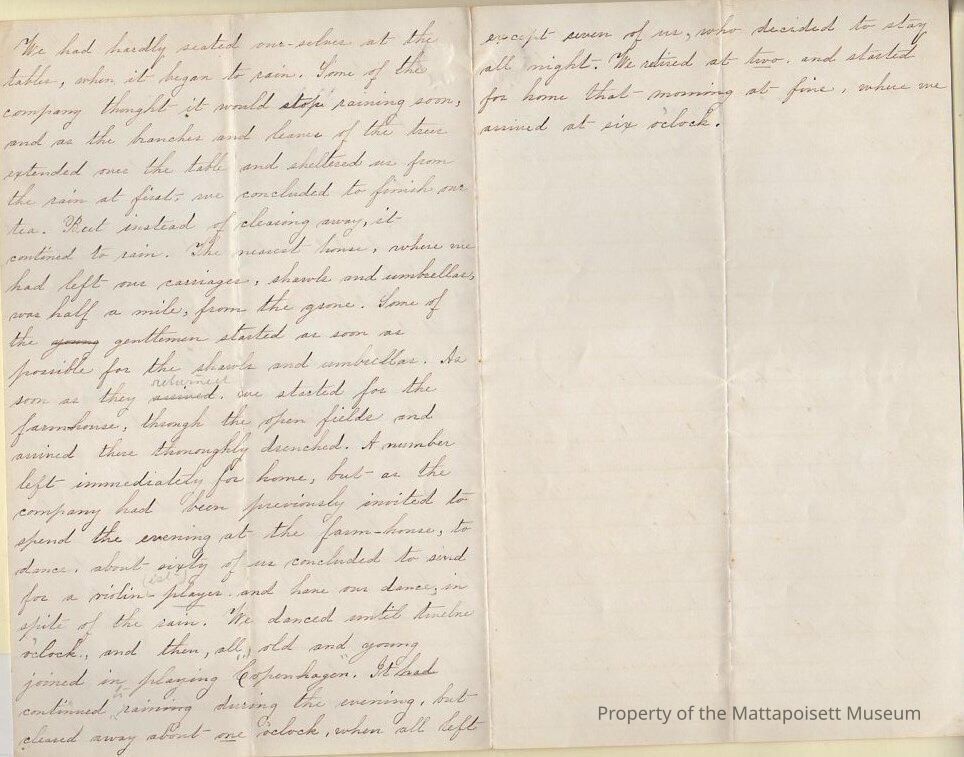 We had hardly seated our-selves at the
table, when it began to rain. Some of the
company thought it would stop raining soon,
and as the branches and leaves of the trees
extended over the table and sheltered us from
the rain at first, we concluded to finish our
tea. But instead of clearing away, it
contined to rain. The nearest house, where we
had left our carriages, shawls and umbrellas,
was half a mile, from the grove. Some of
the young gentlemen started as soon as
possible for the shawls and umbrellas. As
returned
soon as they arrived, we started for the
farmhouse, through the open fields and
arrived there thoroughly drenched. A number
left immediately for home, but as the
company had been previously invited to
spend the evening at the farm-house, to
dance, about sixty of us concluded to send
(ist)
for a violin-player and have our dance, in
spite of the rain. We danced until twelve
o'clock, and then, all, old and young
joined in playing "Copenhagen". It had
continued raining during the evening, but
cleared away about one o'clock, when all left
except seven of us, who decided to stay
all night. We retired at two, and started
for home that morning at five, where we
arrived at six o'clock.
Property of the Mattapoisett Museum